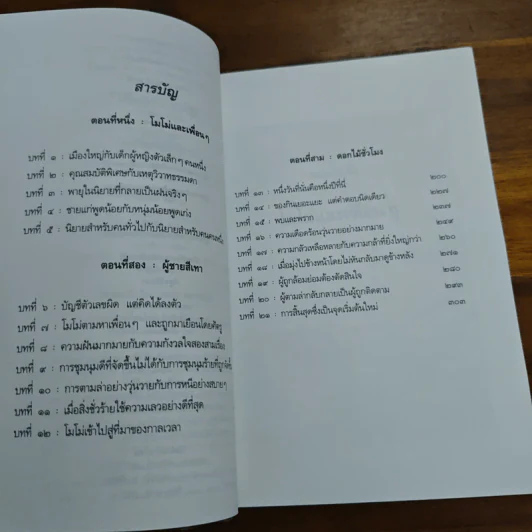 สารบัญ
ตอนที่หนึ่ง : โมโม่และเพื่อนๆ
บทที่ ๑ : เมืองใหญ่กับเด็กผู้หญิงตัวเล็กๆ คนหนึ่ง
บทที่ ๒ : คุณสมบัติพิเศษกับเหตุวิวาทธรรมดา
บทที่ ๓ : พายุในนิยายที่กลายเป็นฝนจริงๆ
บทที่ ๔ : ชายแก่พูดน้อยกับหนุ่มน้อยพูดเก่ง
บทที่ ๕ : นิยายสำหรับคนทั่วไปกับนิยายสำหรับคนคนหนึ่ง
ตอนที่สอง : ผู้ชายสีเทา
บทที่ ๖ : บัญชีตัวเลขผิด แต่คิดได้ลงตัว
บทที่ ๗ : โมโม่ตามหาเพื่อนๆ และถูกมาเยือนโดยศัตรู
บทที่ ๘ : ความฝันมากมายกับความกังวลใจสองสามเรื่อง
บทที่ ๙ : การชุมนุมดีที่จัดขึ้นไม่ได้กับการชุมนุมร้ายที่
บทที่ ๑๐ : การตามล่าอย่างวุ่นวายกับการหนีอย่างสบายๆ
บทที่ ๑๑ : เมื่อสิ่งชั่วร้ายใช้ความเลวอย่างดีที่สุด
บทที่ ๑๒ : โมโม่เข้าไปสู่ที่มาของกาลเวลา
ตอนที่สาม : ดอกไม้ชั่วโมง
บทที่ ๑๓ : หนึ่งวันที่นั่นคือหนึ่งปีที่นี่ ๒๐๐
บทที่ ๑๔ : ของกินเยอะแยะ แต่คำตอบนิดเดียว ๒๒๗
บทที่ ๑๕ : พบและพราก ๒๓๗
บทที่ ๑๖ : ความเดือดร้อนวุ่นวายอย่างมากมาย ๒๔๙
บทที่ ๑๗ : ความกลัวเหลือหลายกับความกล้าที่ยิ่งใหญ่กว่า ๒๖๐
บทที่ ๑๘ : เมื่อมุ่งไปข้างหน้าโดยไม่หันกลับมาดูข้างหลัง ๒๗๑
บทที่ ๑๙ : ผู้ถูกล้อมย่อมต้องตัดสินใจ ๒๘๐
บทที่ ๒๐ : ผู้ตามล่ากลับกลายเป็นผู้ถูกติดตาม ๒๙๓
บทที่ ๒๑ : การสิ้นสุดซึ่งเป็นจุดเริ่มต้นใหม่ ๓๐๓